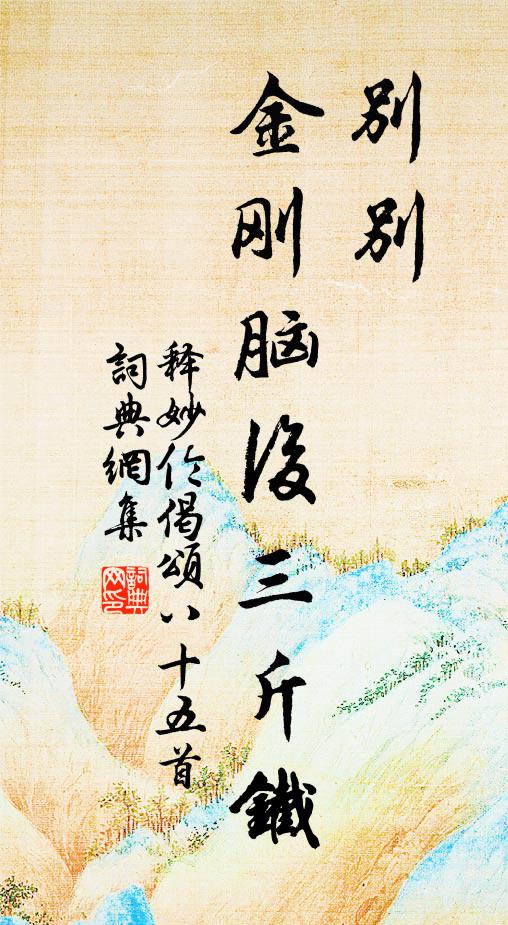 别别
金刚脑後三斤鐵
释妙伦偈頌八十五首
詞典網集
詞典網印